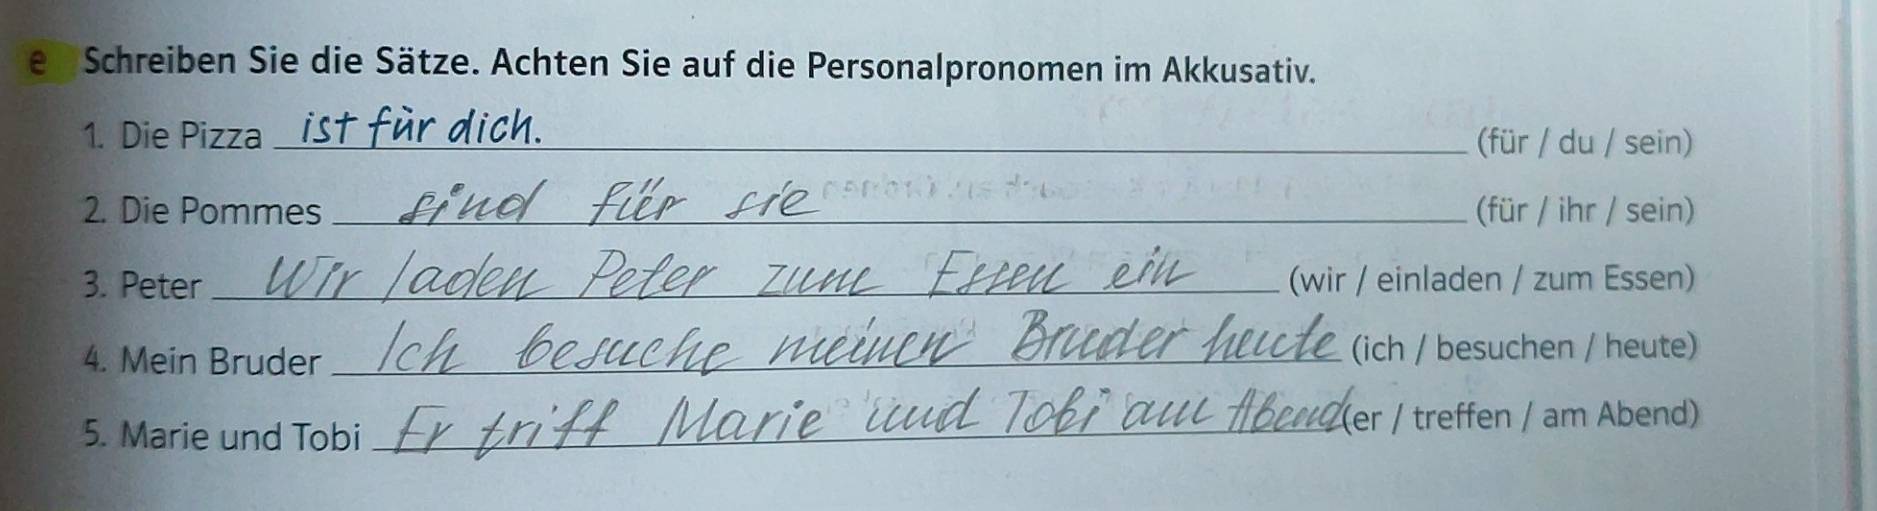 e Schreiben Sie die Sätze. Achten Sie auf die Personalpronomen im Akkusativ.
1. Die Pizza ist für dich. (für / du / sein)
2. Die Pommes sind für sie (für / ihr / sein)
3. Peter Wir laden Peter zum Essen ein (wir / einladen / zum Essen)
4. Mein Bruder Ich besuche meinen Bruder heute (ich / besuchen / heute)
5. Marie und Tobi Er triff Marie und Tobi am Abend (er / treffen / am Abend)